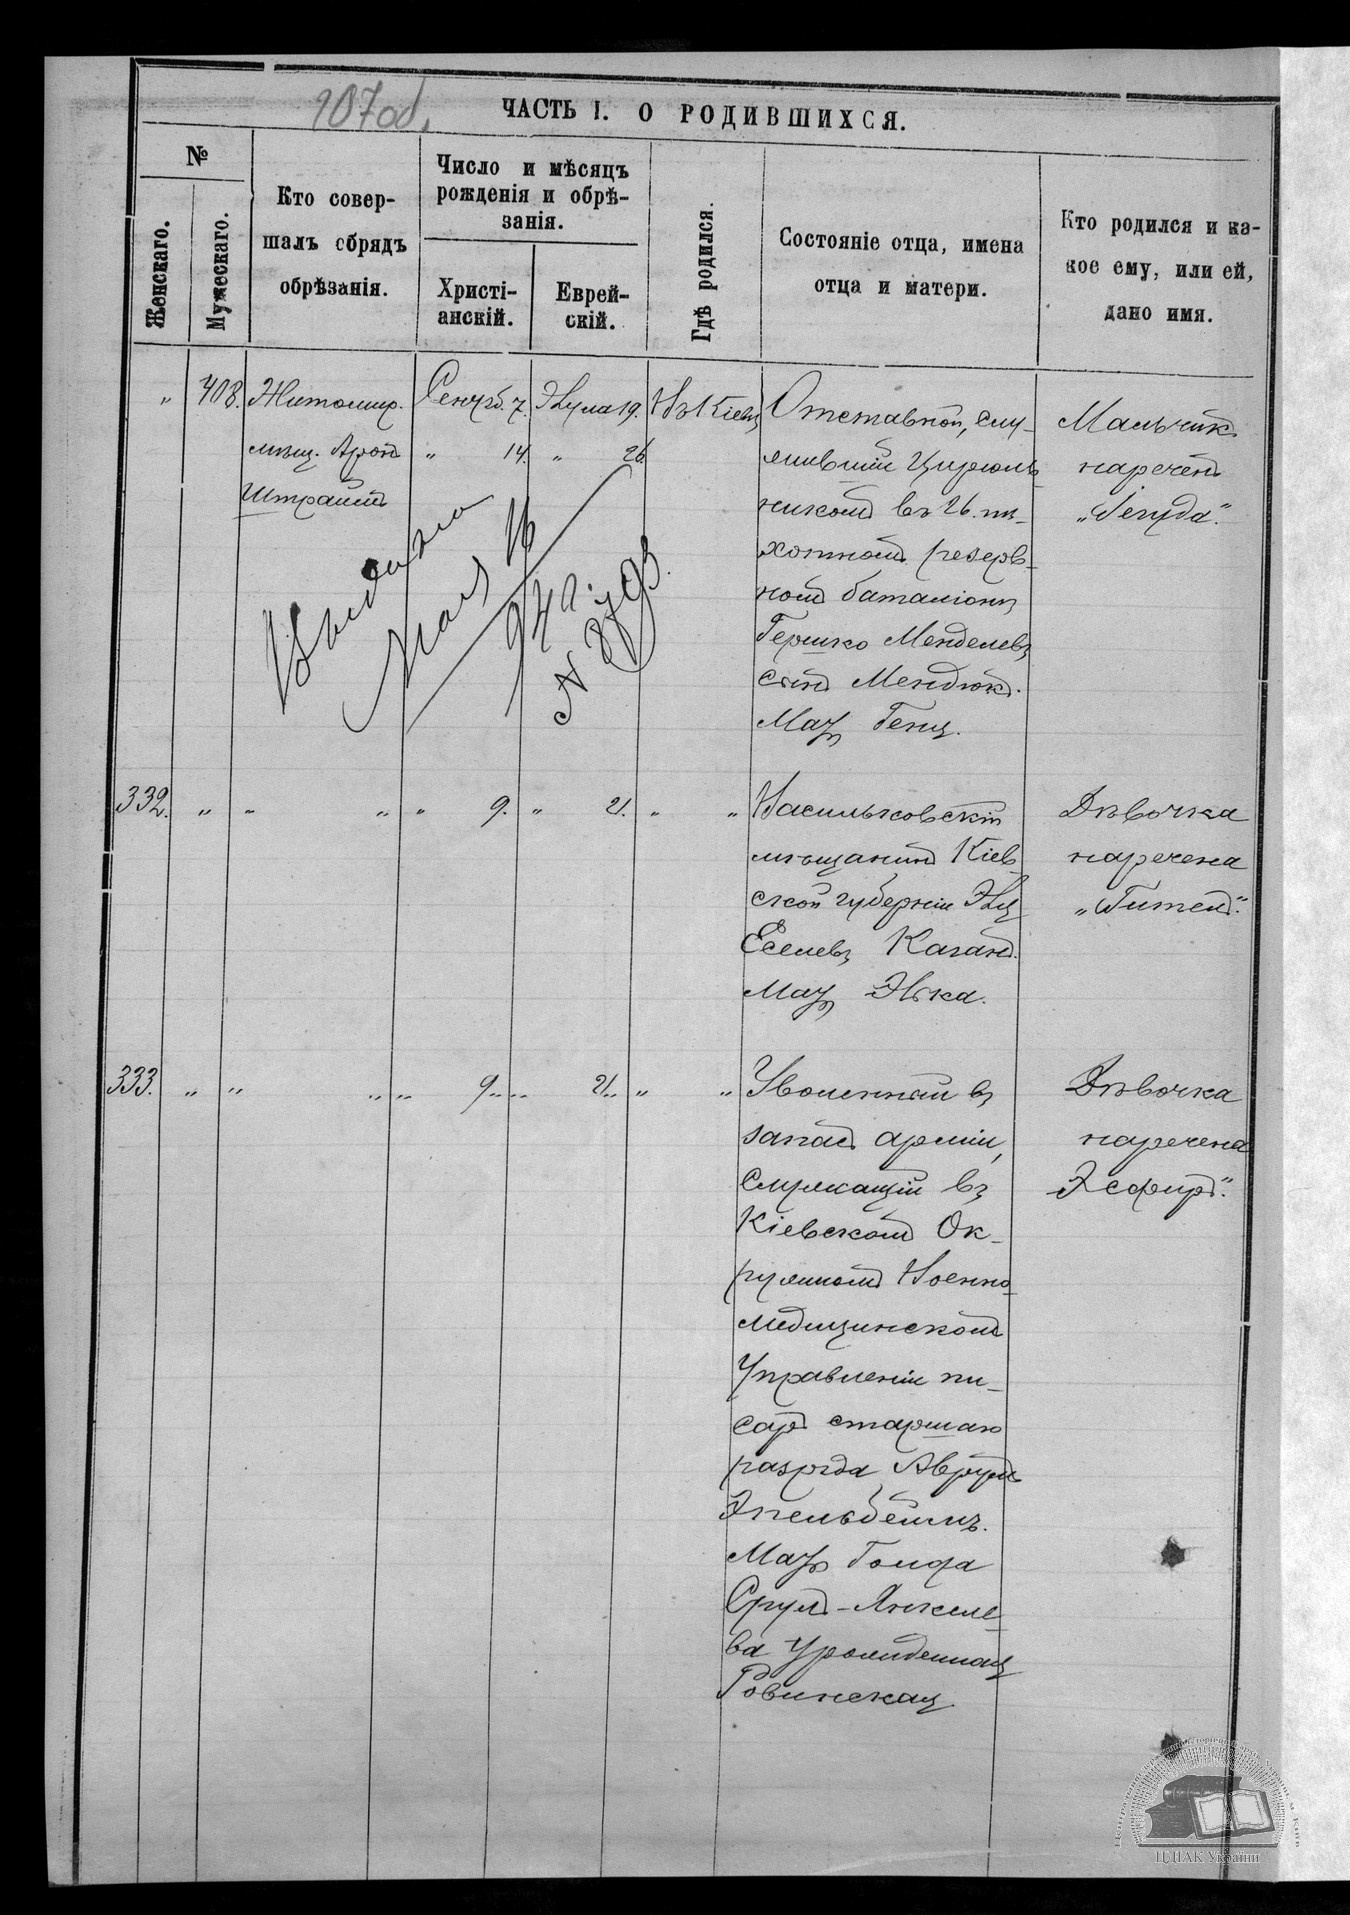 107об.
ЧАСТЬ I. О РОДИВШИХСЯ.
№
Женскаго.
Мужескаго.
Кто совер-
шалъ обрядъ
обрѣзанія.
Число и мѣсяцъ
рожденія и обрѣ-
занія.
Христі-
анскій.
Еврей-
скій.
Гдѣ родился.
Состояніе отца, имена
отца и матери.
Кто родился и ка-
кое ему, или ей,
дано имя.
„ 408. Житомир. Сентяб. 7. Элула 19. Въ Кіевѣ
мѣщ. Аронъ „ 14. „ 26.
Штраймъ
Отставной, слу-
жившій Цирюль-
никомъ въ 26. пѣ-
хотномъ резерв-
номъ баталіонѣ
Гершко Менделевъ
сынъ Мендюкъ.
Мать Геня.
Мальчикъ
нареченъ
„Іегуда“.
Выдана
Мая 16
94 г.
N 8793.
332. „ „ „ „ 9. „ 21. „ „
Васильковскій
мѣщанинъ Кіев-
ской губерніи Эля
Еселевъ Каганъ.
Мать Эвка.
Дѣвочка
наречена
„Гитель“.
333. „ „ „ „ 9. „ 21. „ „
Уволенный въ
запасъ арміи,
служащій въ
Кіевскомъ Ок-
ружномъ Военно-
медицинскомъ
Управленіи пи-
сарь старшаго
разряда Аврумъ
Эпельбеймъ.
Мать Голда
Сруль-Янкеле-
ва урожденная
Ровинская
Дѣвочка
наречена
Эсфирь“.
ЦДІАК України